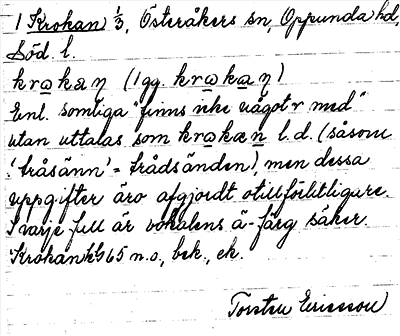 1 Krokan 1/3, Österåkers sn, Oppunda hd,
Söd. l.
krωkaη (1 gg. krωkaη)
Enl. somliga "finns nhe något r med"
utan uttalas som krωkæn l. d. (såsom
'tråsänn' = trådsänden), men dessa
uppgifter äro afgjordt otillförlitligare.
I varje fall är vokalens ä-färg säker.
Krokan 65 n.o., bek., ek.
Torsten Ericsson